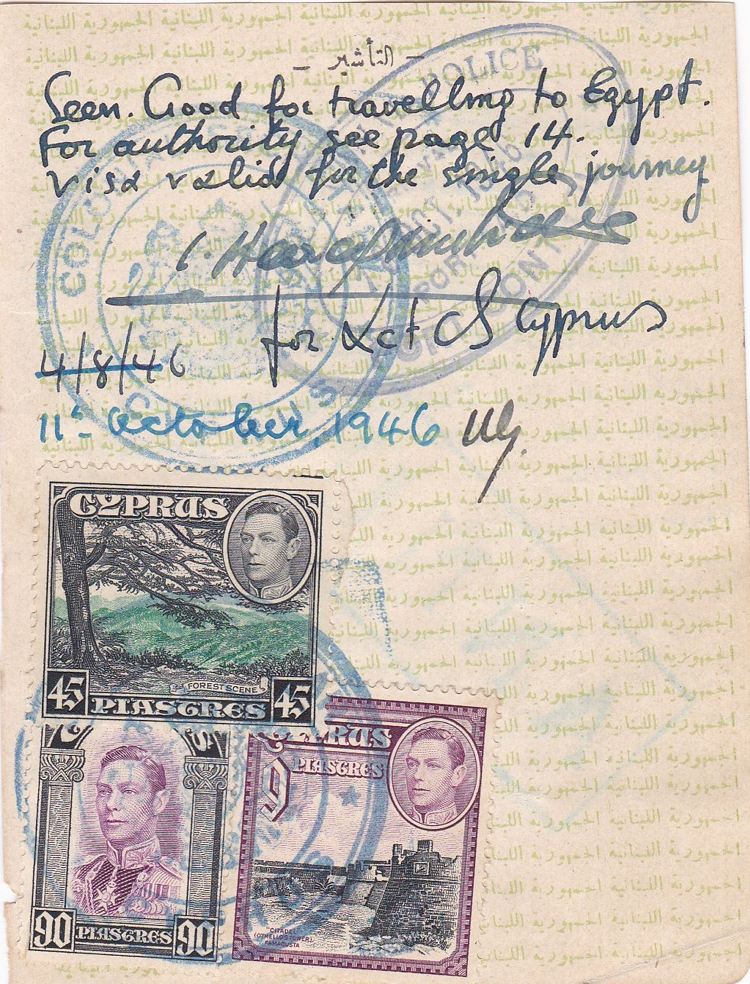 – التأشير –
Seen. Good for travelling to Egypt.
For authority see page 14.
Visa valid for the single journey
for Act CS Cyprus
4/8/46
11th October, 1946
POLICE
COLONIAL
الجمهورية اللبنانية
CYPRUS
FOREST SCENE
45 PIASTRES 45
90 PIASTRES 90
CYPRUS
9 PIASTRES
CITADEL
(OTHELLO'S TOWER)
FAMAGUSTA